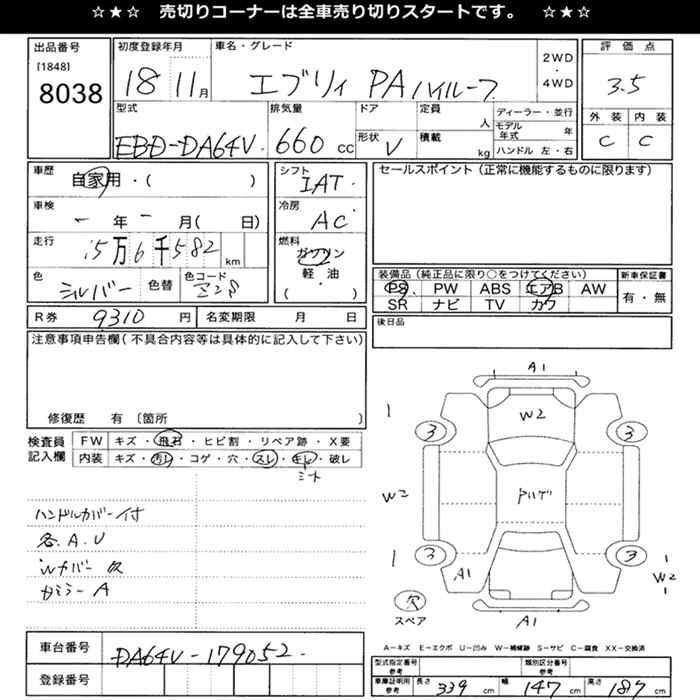 ☆★☆ 売切りコーナーは全車売り切りスタートです。 ☆★☆
出品番号 [1848] 8038
初度登録年月 18 11月
車名・グレード エブリィ PA ハイルーフ
2WD ・ 4WD
評価点 3.5
外装 内装
C C
型式 EBD-DA64V
排気量 660 cc
ドア 形状 V
定員 人
積載 kg
ディーラー・並行
モデル年式 年
ハンドル 左・右
車歴 自家用・( )
車検 ー 年 ー 月( 日)
走行 15万6千582 km
色 シルバー 色替 色コード Z2S
シフト IAT
冷房 AC
燃料 ガソリン 軽・油 ( )
セールスポイント (正常に機能するものに限ります)
装備品 (純正品に限り○をつけてください)
PS PW ABS エアB AW
SR ナビ TV カワ
新車保証書 有・無
R券 9310 円
名変期限 月 日
後日品
注意事項申告欄 (不具合内容等は具体的に記入して下さい)
修復歴 有 〔箇所 〕
検査員記入欄
FW キズ・飛石・ヒビ割・リペア跡・X要
内装 キズ・汚レ・コゲ・穴・スレ・キレ・破レ
シート
ハンドルカバー付
各.A.U
Wカバー欠
A
A1
1 W2
3 3
W2
1 3 3 1
A1 W2
欠 スペア
A1
A-キズ E-エクボ U-凹み W-補修跡 S-サビ C-腐食 XX-交換済
車台番号 DA64V-179052
登録番号
型式指定番号 参考
類別区分番号 参考
車庫証明用 参考 長さ 339 cm 幅 147 cm 高さ 187 cm